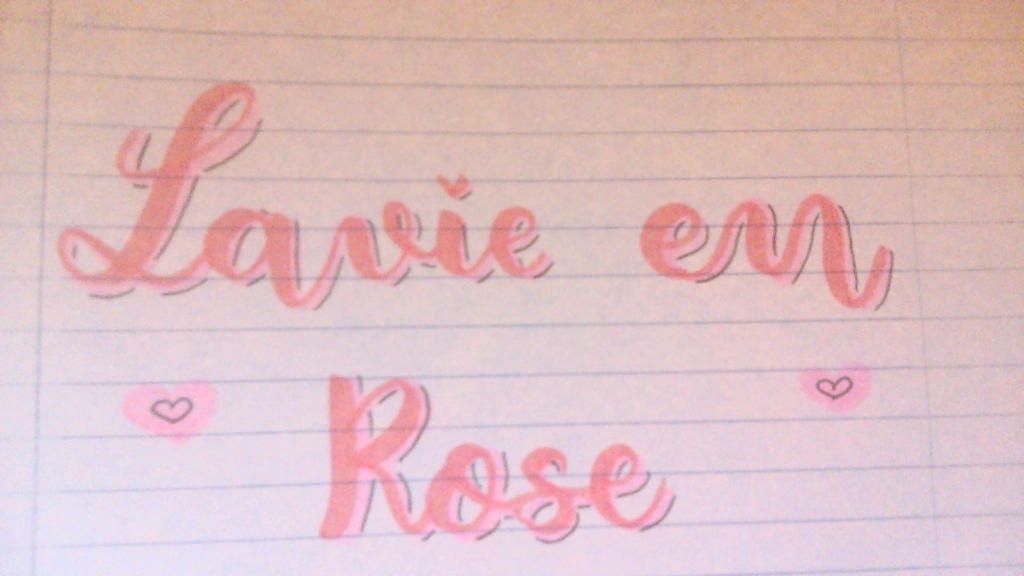 Lavie en
Rose